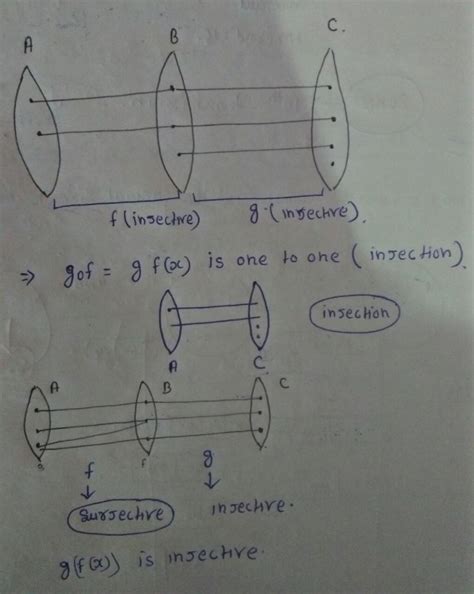 A B C.
f (injective) g. (injective).
⇒ gof = g f(x) is one to one ( injection).
injection
A C.
A B C
f g
Surjective injective.
g(f(x)) is injective.